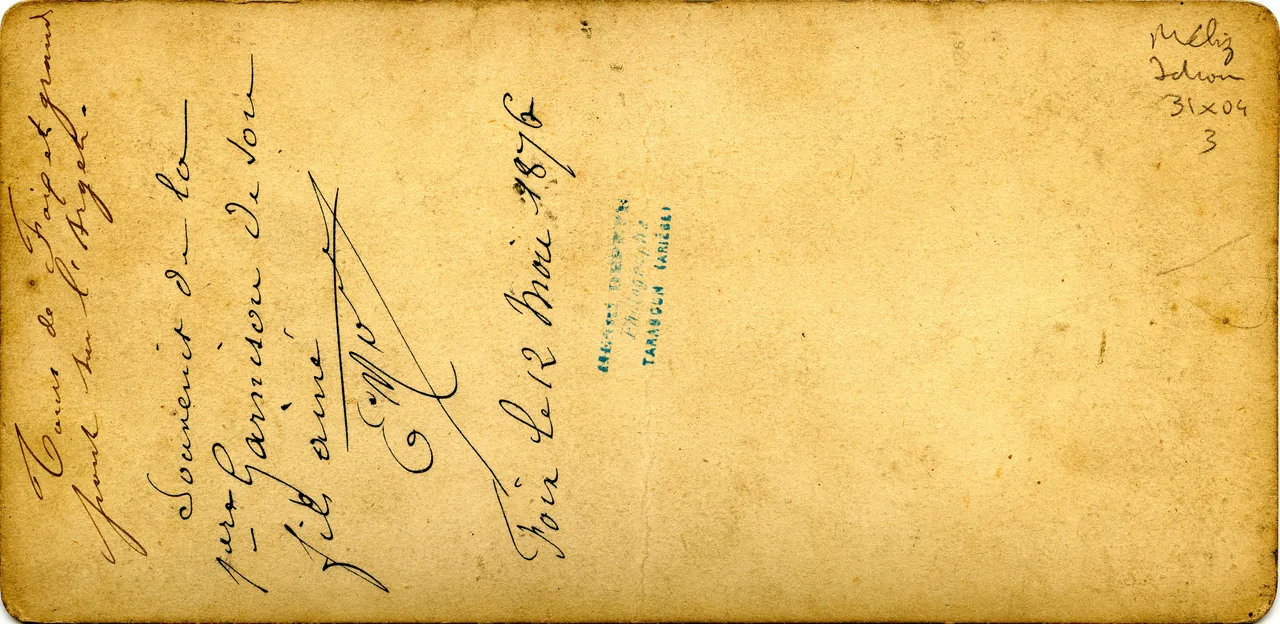 Tours de Foix et grand
pont sur l'Arget.
Souvenir de la
Garnison de son
fils ainé
Foix Le 12 1876
Photographe
TARASCON (ARIÈGE)
31x04
3